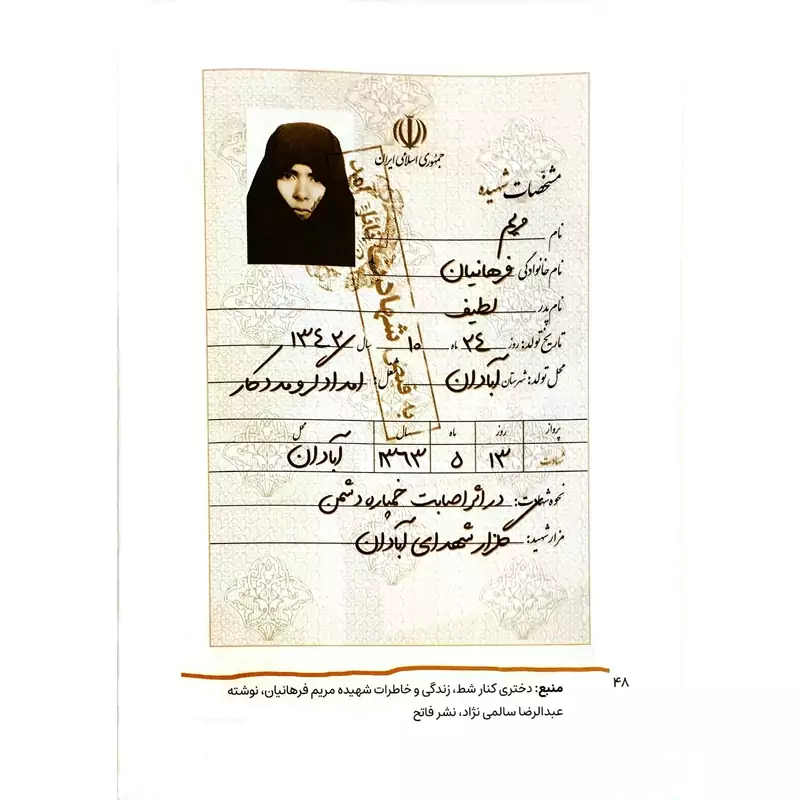 جمهوری اسلامی ایران
مشخصات شهیده
نام مریم
نام خانوادگی فرهانیان
نام پدر لطیف
تاریخ تولد: روز ۲۴ ماه ۱۰ سال ۱۳۴۲
محل تولد: شهرستان آبادان شغل: امدادگر و مددکار
پرواز روز ماه سال محل
شهادت ۱۳ ۵ ۱۳۶۳ آبادان
نحوه شهادت: در اثر اصابت خمپاره دشمن
مزار شهید: گلزار شهدای آبادان
به فیض شهادت نائل آمد
۴۸
منبع: دختری کنار شط، زندگی و خاطرات شهیده مریم فرهانیان، نوشته
عبدالرضا سالمی نژاد، نشر فاتح